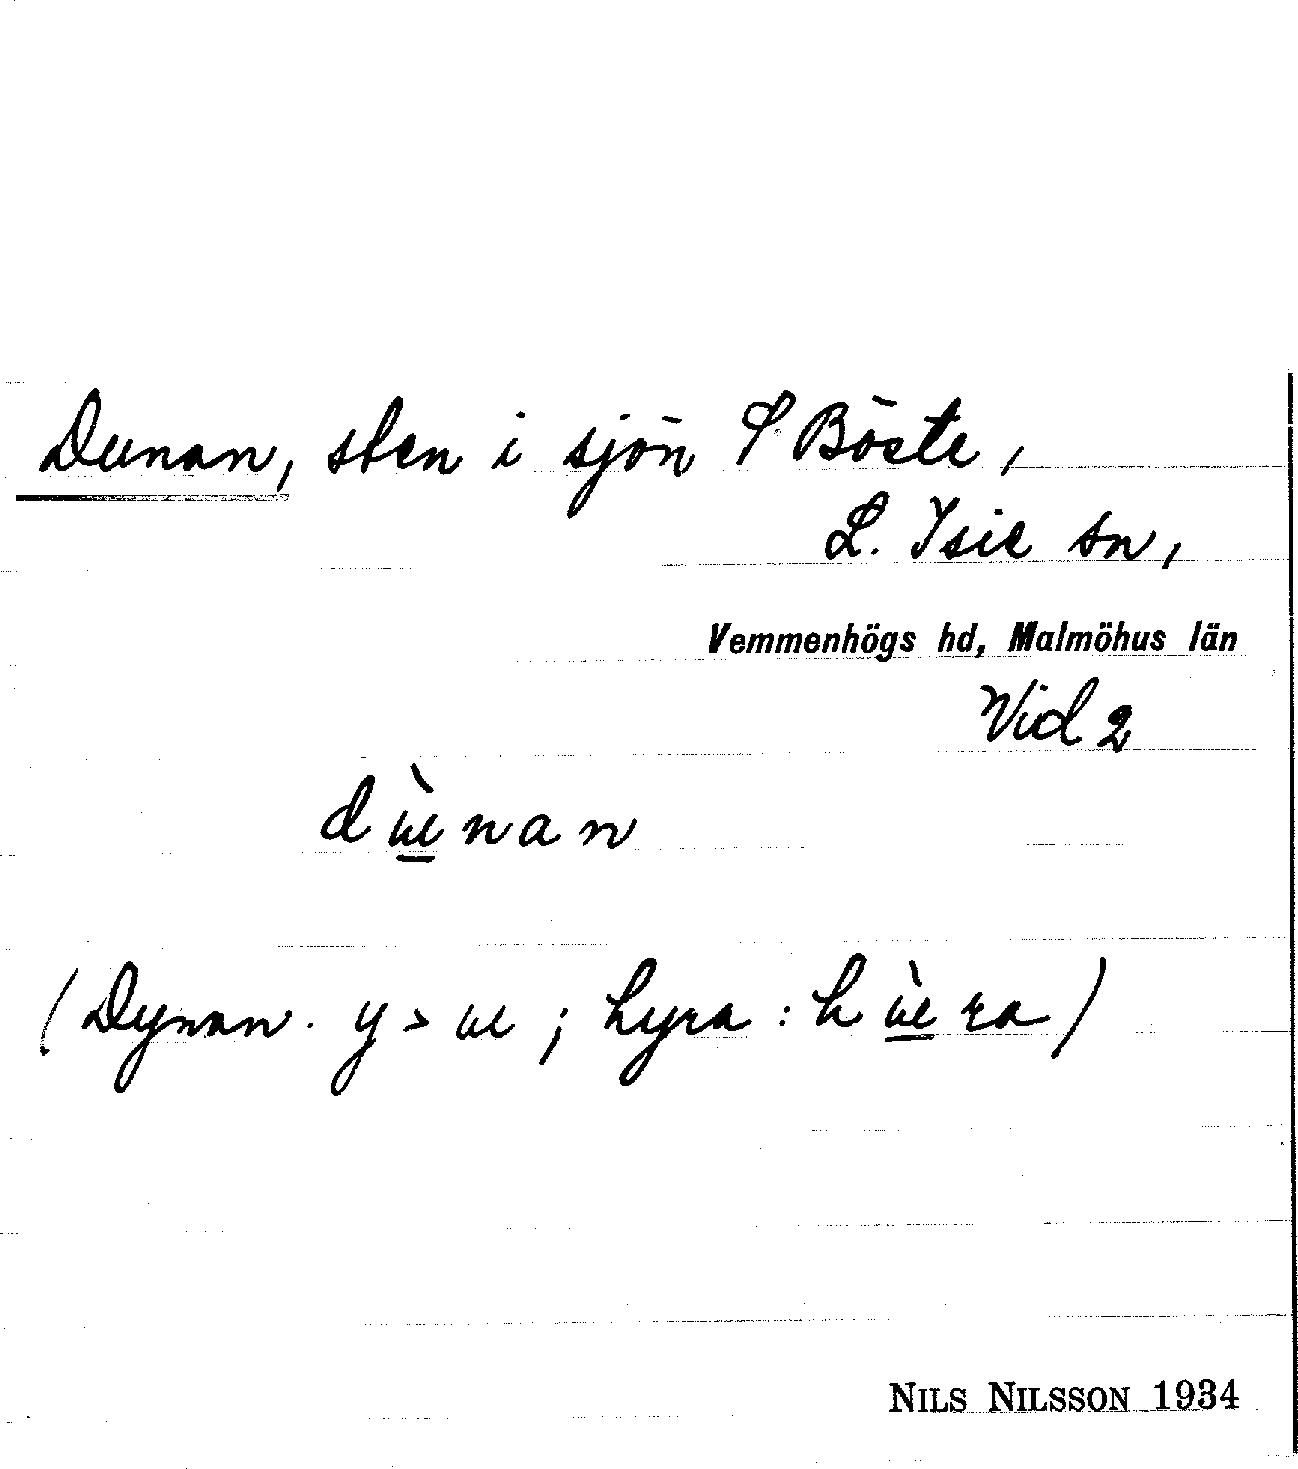 Dunan, sten i sjön S Böste,
L. Isie sn,
Vemmenhögs hd, Malmöhus län
Vid 2
dʉ̀nan
(Dynan. y > ʉ ; hyra : hʉ̀ra)
NILS NILSSON 1934